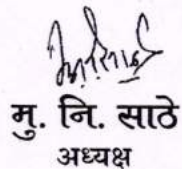 मु. नि. साठे
अध्यक्ष